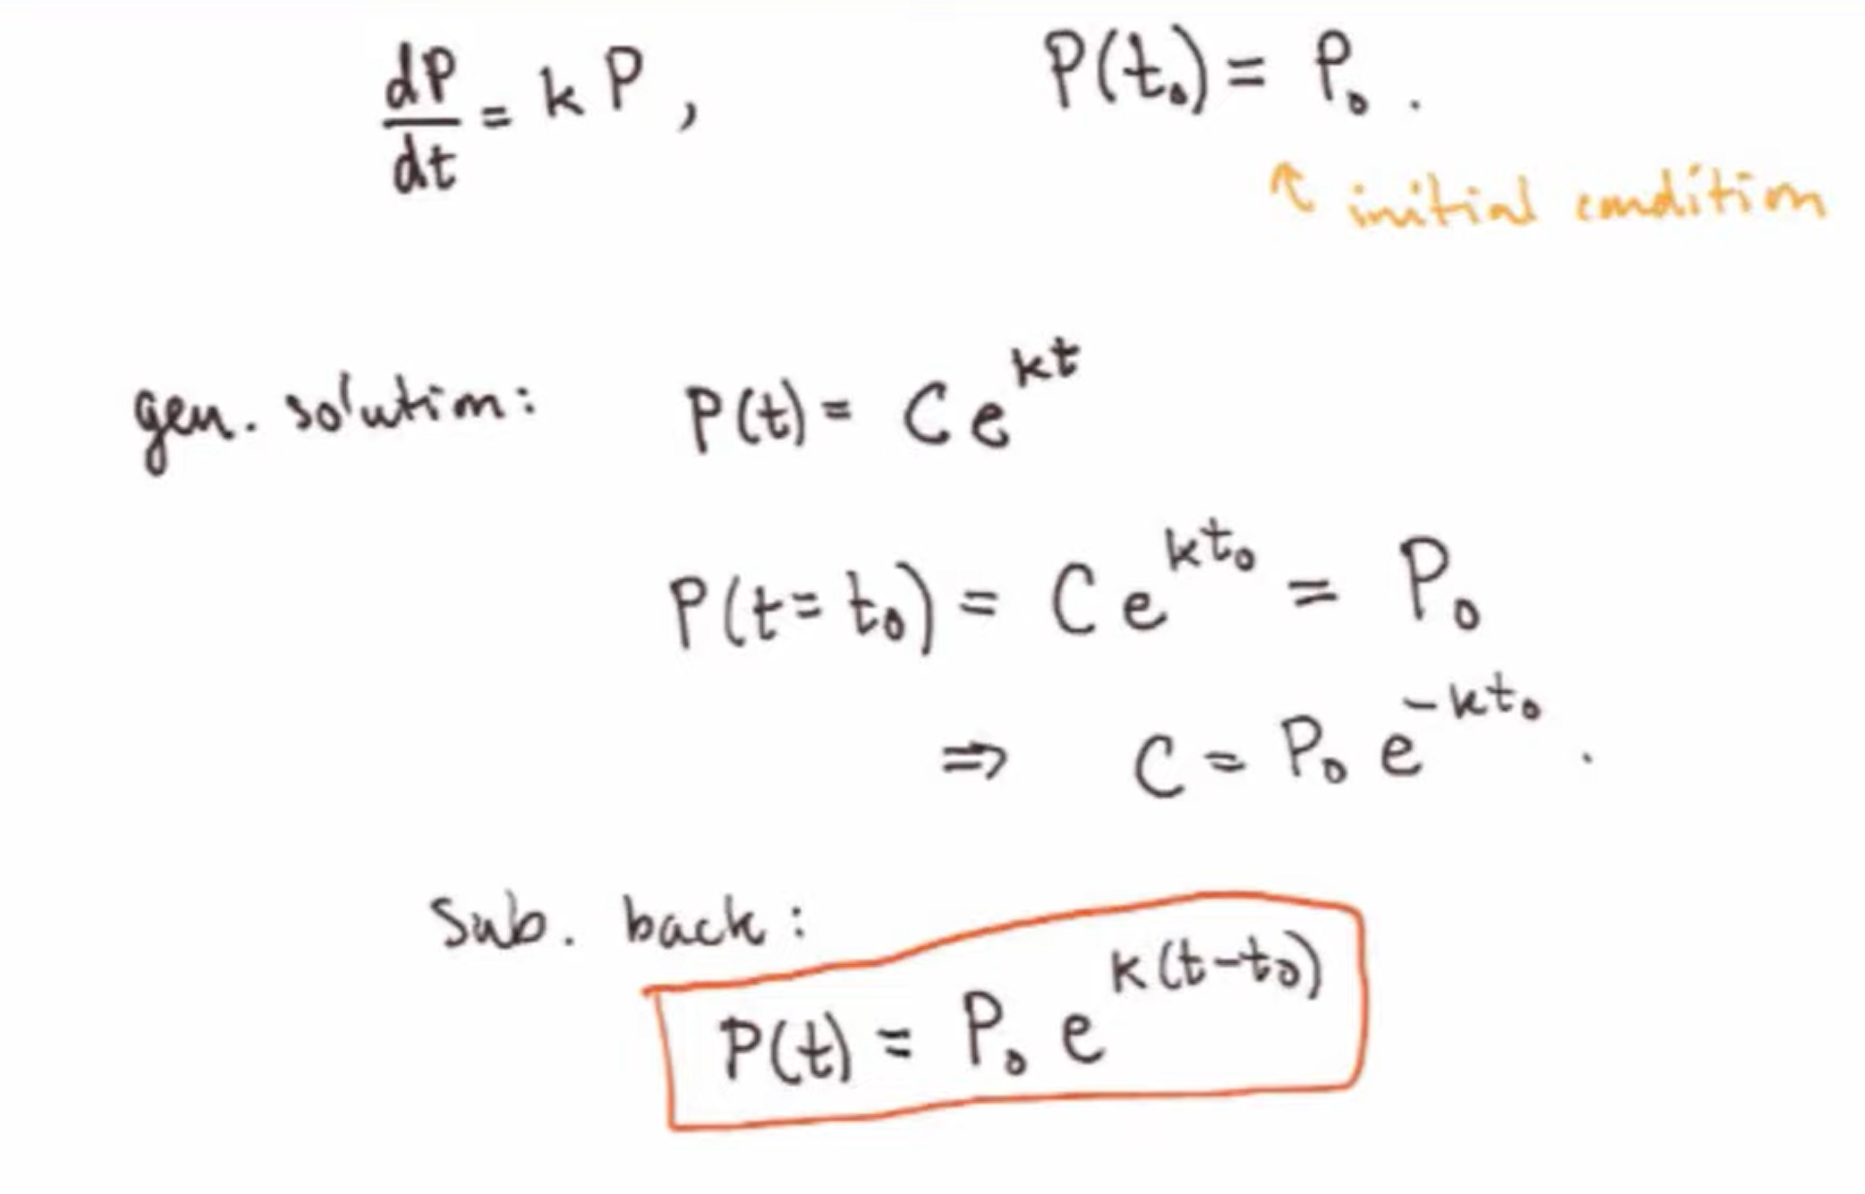 dP/dt = kP, P(t₀) = P₀.
↑ initial condition
gen. solution: P(t) = C e^{kt}
P(t = t₀) = C e^{kt₀} = P₀
⇒ C = P₀ e^{-kt₀}.
Sub. back:
P(t) = P₀ e^{k(t-t₀)}